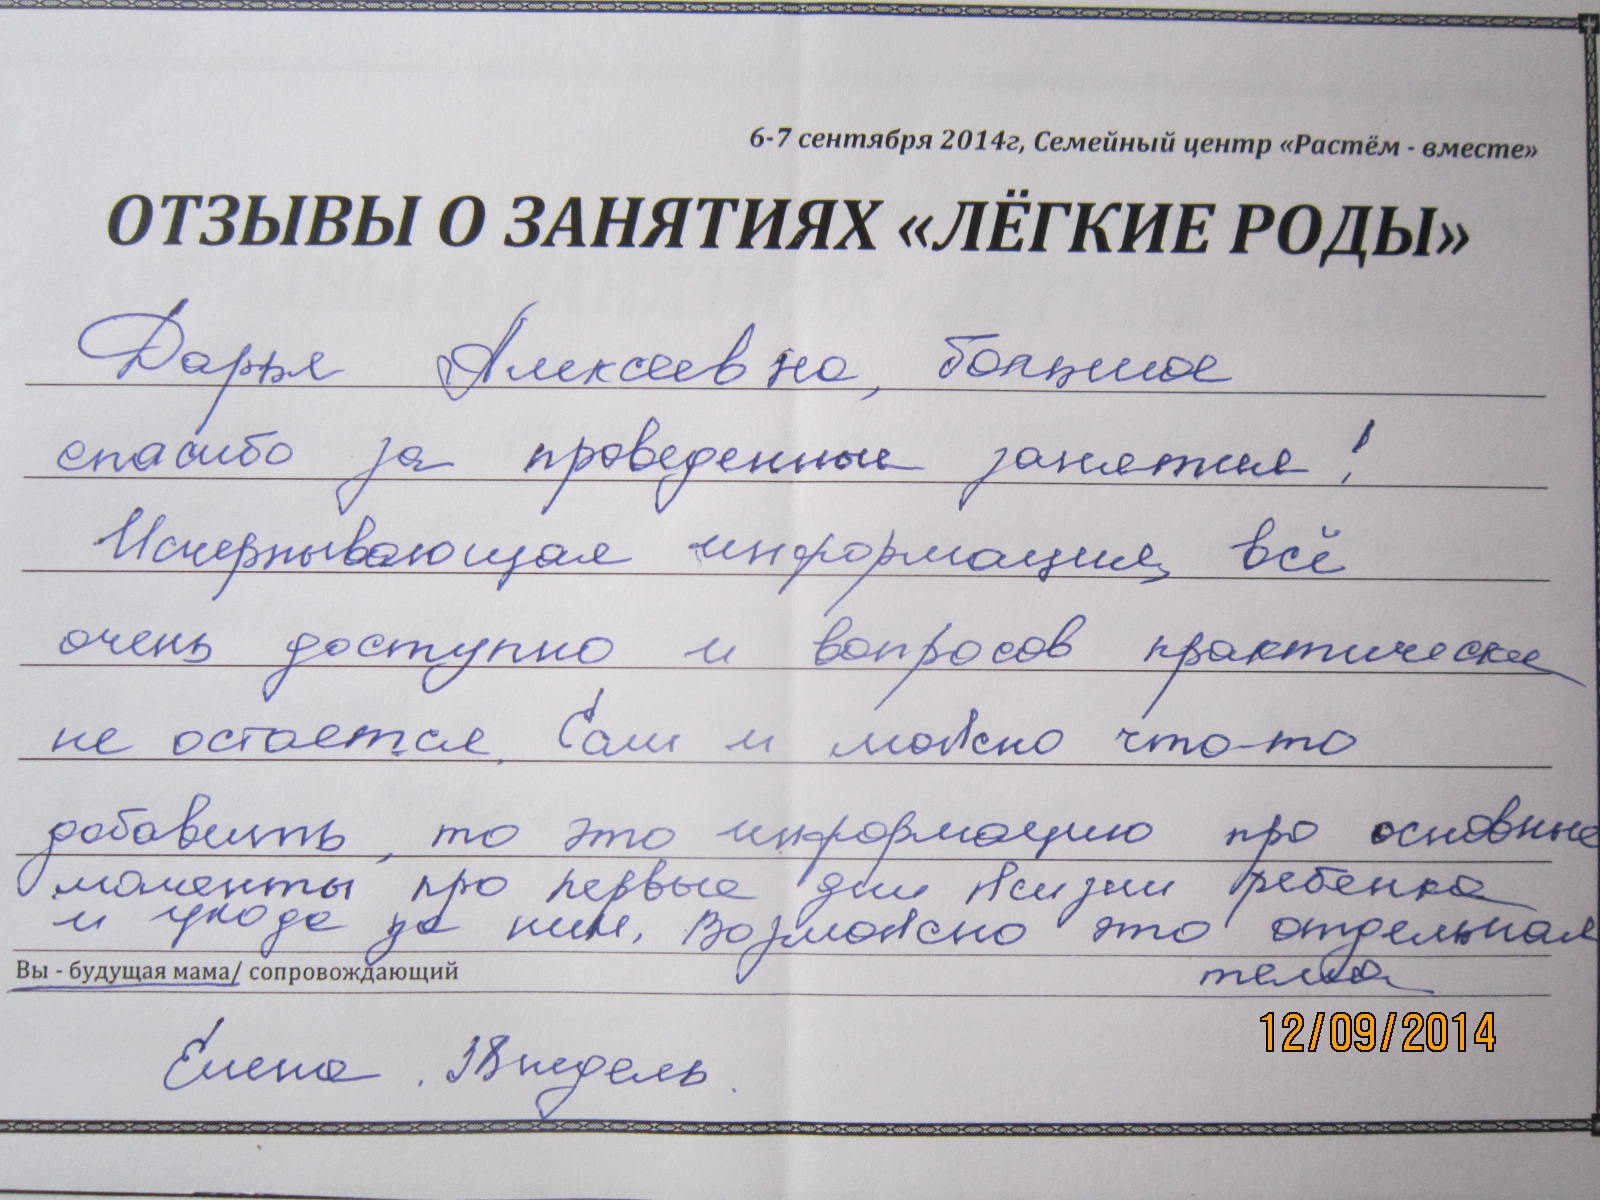 6-7 сентября 2014г, Семейный центр «Растём - вместе»
ОТЗЫВЫ О ЗАНЯТИЯХ «ЛЁГКИЕ РОДЫ»
Дарья Алексеевна, большое
спасибо за проведенные занятия!
Исчерпывающая информация, всё
очень доступно и вопросов практически
не остается. Если и можно что-то
добавить, то это информацию про основные
моменты про первые дни жизни ребенка
и ухода за ним. Возможно это отдельная
тема
Вы - будущая мама/ сопровождающий
12/09/2014
Елена. 38 недель.